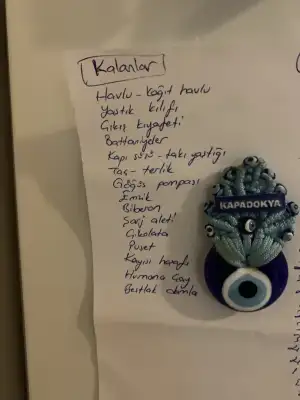 Kalanlar
Havlu - kağıt havlu
Yastık kılıfı
Çıkış kıyafeti
Battaniyeler
Kapı süsü - takı yastığı
Taç - terlik
Göğüs pompası
Emzik
Biberon
Şarj aleti
Çikolata
Puset
Kayısı
Humana Çay
KAPADOKYA